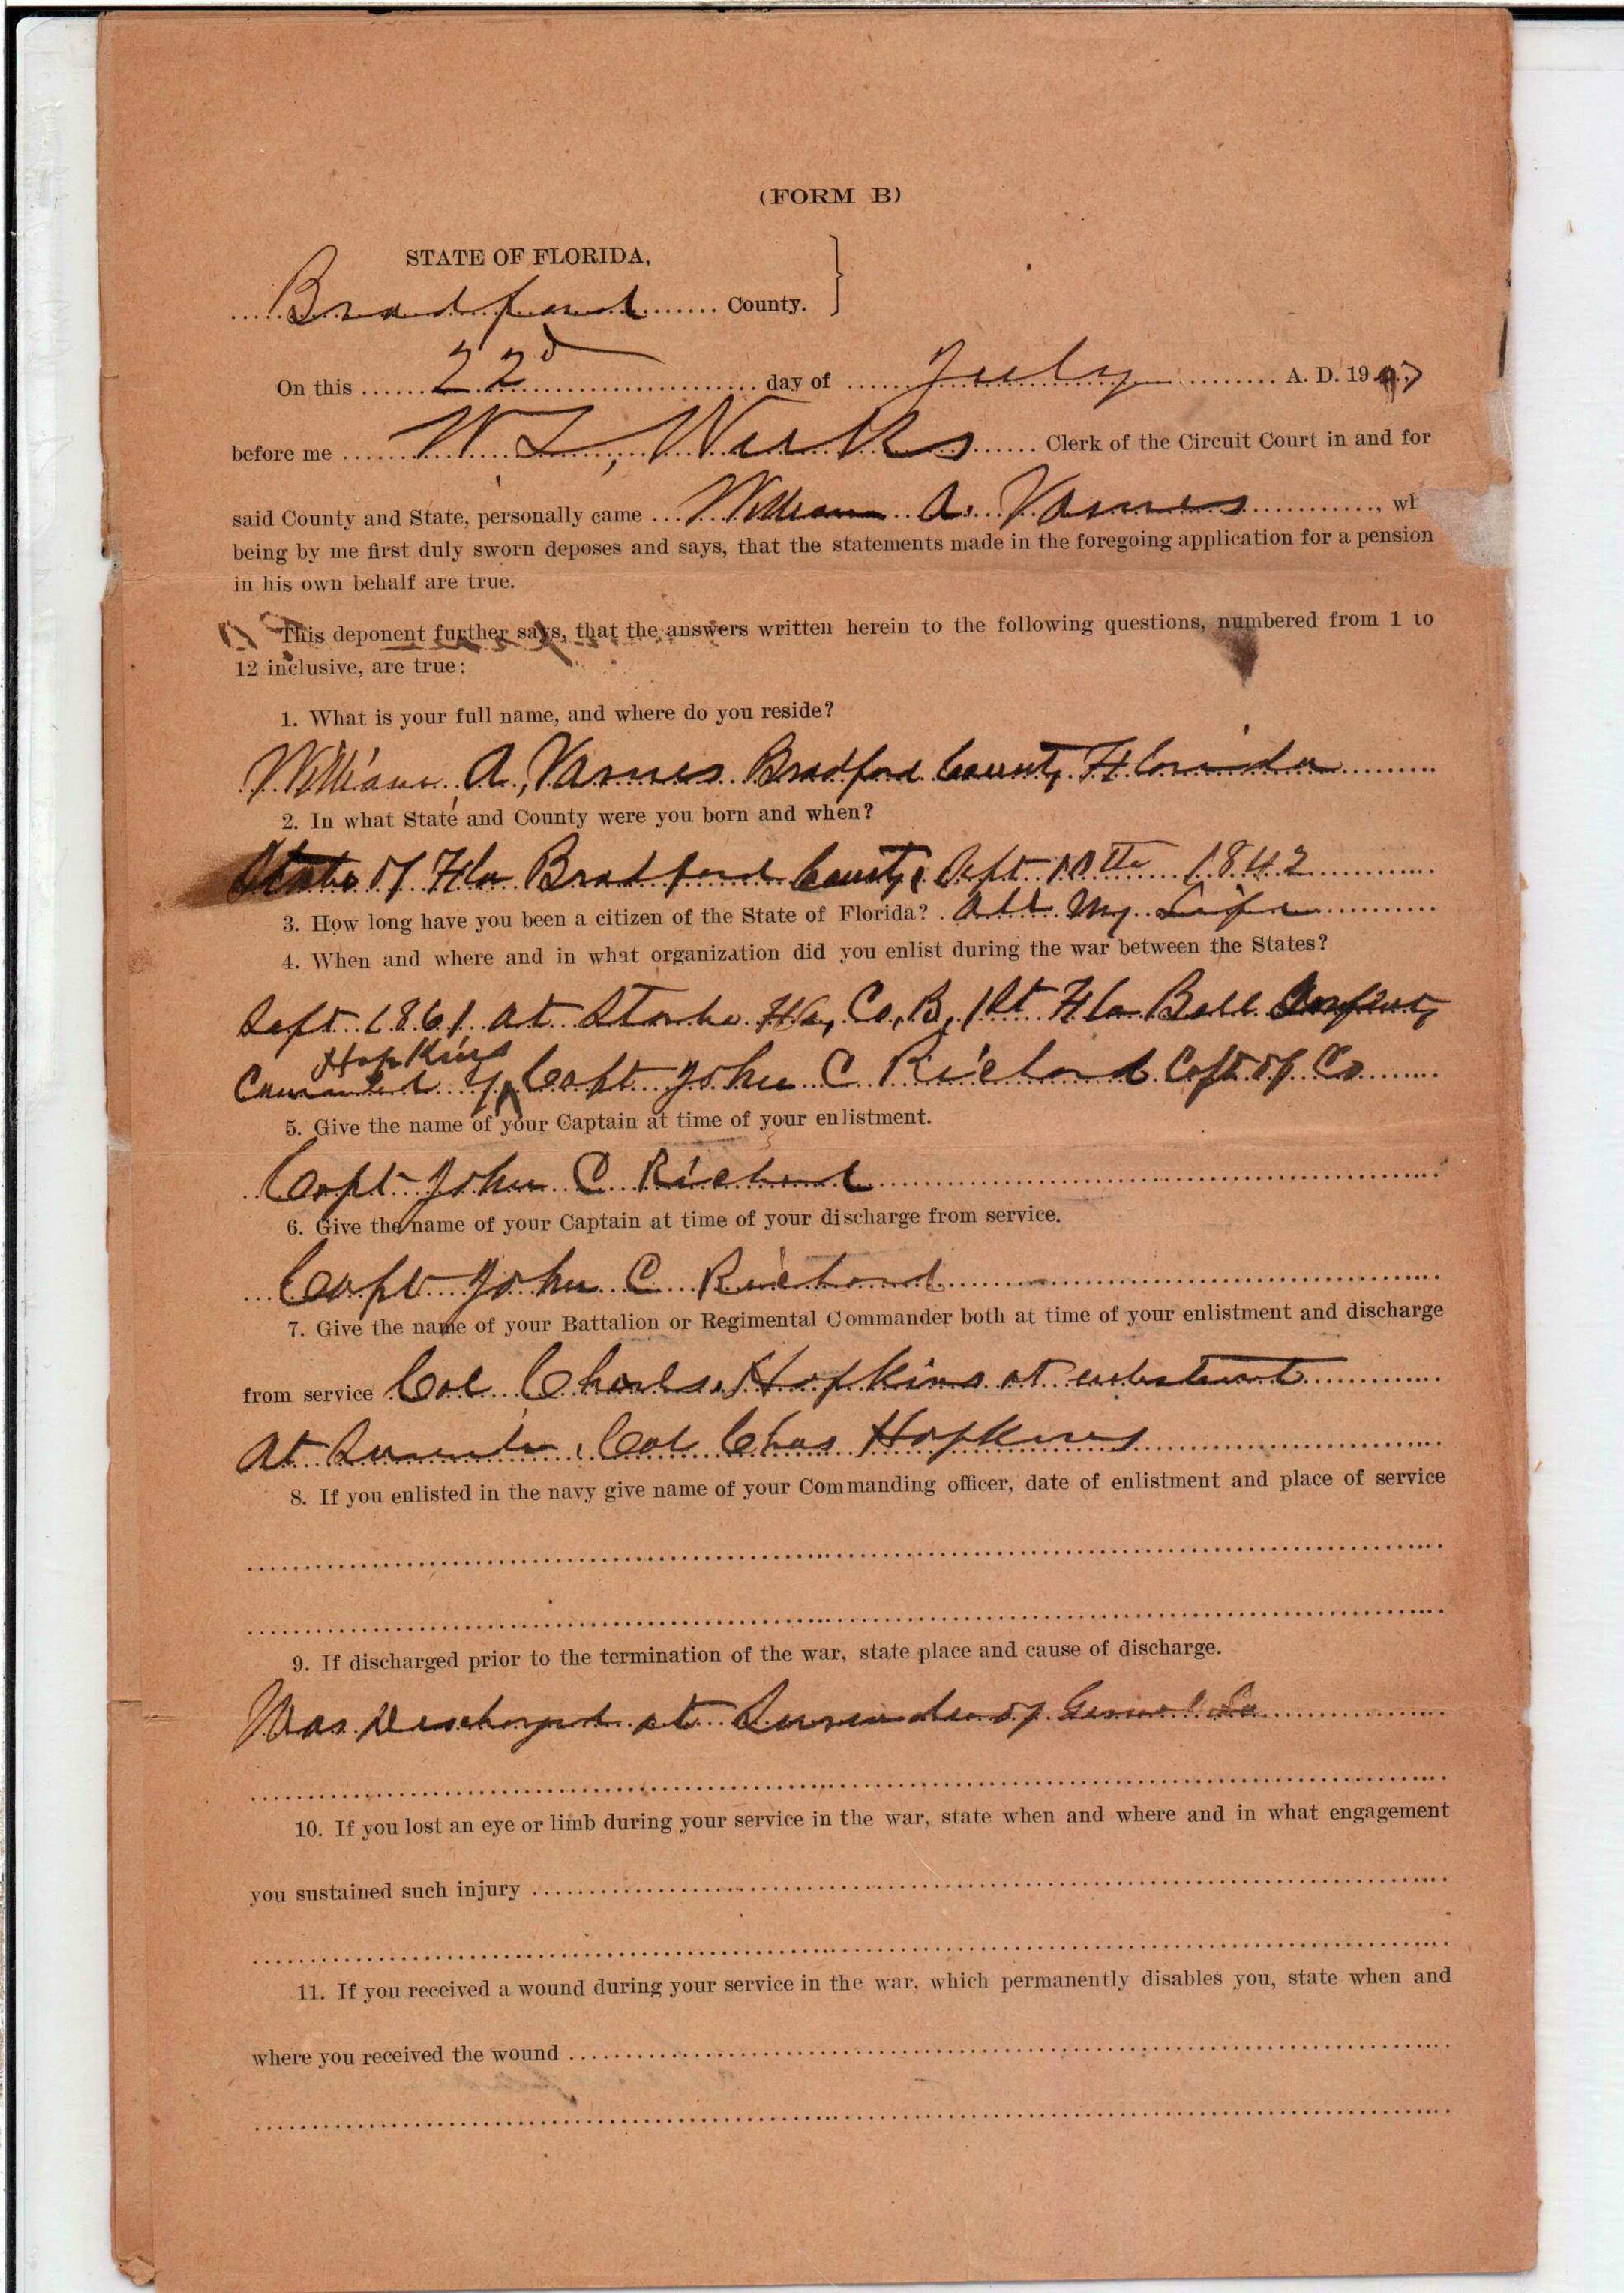 (FORM B)
STATE OF FLORIDA,
Bradford County.
On this 22d day of July A. D. 1907
before me W L, Clerk of the Circuit Court in and for
said County and State, personally came William A. Varnes, wh
being by me first duly sworn deposes and says, that the statements made in the foregoing application for a pension
in his own behalf are true.
This deponent further says, that the answers written herein to the following questions, numbered from 1 to
12 inclusive, are true:
1. What is your full name, and where do you reside?
William, A, Varnes Bradford County Florida
2. In what State and County were you born and when?
State of Fla Bradford County Sept 10th 1842
3. How long have you been a citizen of the State of Florida? All My Life
4. When and where and in what organization did you enlist during the war between the States?
Sept 1861 at Starke Fla, Co, B, 1st Fla Batt Infant,
Hopkins
Commanded by Capt John C Richard Capt of Co
5. Give the name of your Captain at time of your enlistment.
Capt John C Richard
6. Give the name of your Captain at time of your discharge from service.
Capt John C Richard
7. Give the name of your Battalion or Regimental Commander both at time of your enlistment and discharge
from service Col Charls Hopkins at enlistment
At Surender, Col Chas Hopkins
8. If you enlisted in the navy give name of your Commanding officer, date of enlistment and place of service
9. If discharged prior to the termination of the war, state place and cause of discharge.
Was Discharged at Surender of General Lee
10. If you lost an eye or limb during your service in the war, state when and where and in what engagement
you sustained such injury
11. If you received a wound during your service in the war, which permanently disables you, state when and
where you received the wound